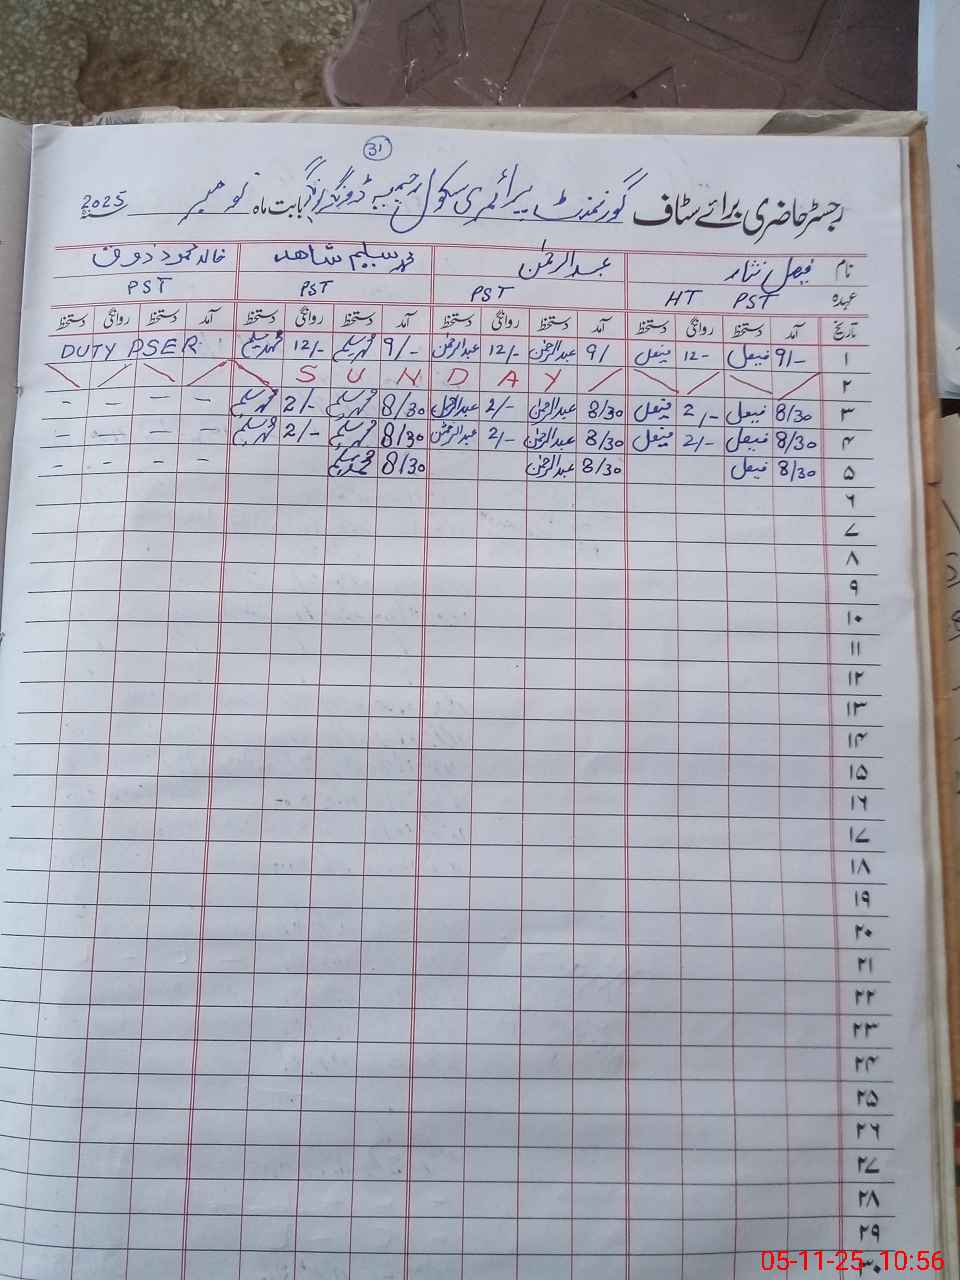 31
رجسٹر حاضری برائے سٹاف گورنمنٹ پرائمری سکول رحیم ڈوگر بابت ماہ نومبر 2025
نام فیصل نثار عبدالرحمٰن محمد سلیم شاھد خالد محمود ذوق
عہدہ HT PST PST PST PST
تاریخ آمد دستخط روانگی دستخط آمد دستخط روانگی دستخط آمد دستخط روانگی دستخط آمد دستخط روانگی دستخط
۱ 9/- فیصل 12- فیصل 9/ عبدالرحمٰن 12/- عبدالرحمٰن 9/- محمد سلیم 12/- محمد سلیم DUTY PSER
۲ SUNDAY
۳ 8/30 فیصل 2/- فیصل 8/30 عبدالرحمٰن 2/- عبدالرحمٰن 8/30 محمد سلیم 2/- محمد سلیم - - - -
۴ 8/30 فیصل 2/- فیصل 8/30 عبدالرحمٰن 2/- عبدالرحمٰن 8/30 محمد سلیم 2/- محمد سلیم - - - -
۵ 8/30 فیصل 8/30 عبدالرحمٰن 8/30 محمد سلیم - - - -
۶
۷
۸
۹
۱۰
۱۱
۱۲
۱۳
۱۴
۱۵
۱۶
۱۷
۱۸
۱۹
۲۰
۲۱
۲۲
۲۳
۲۴
۲۵
۲۶
۲۷
۲۸
۲۹
۳۰
05-11-25 10:56